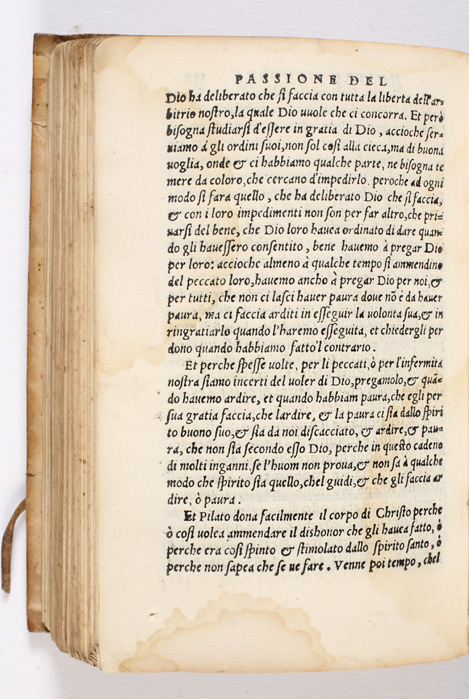 PASSIONE DEL
Dio ha deliberato che si faccia con tutta la liberta dell'ar⸗
bitrio nostro, la quale Dio uuole che ci concorra. Et però
bisogna studiarsi d'essere in gratia di Dio, accioche ser⸗
uiamo à gli ordini suoi, non sol così alla cieca, ma di buona
uoglia, onde & ci habbiamo qualche parte, ne bisogna te
mere da coloro, che cercano d'impedirlo, peroche ad ogni
modo si fara quello, che ha deliberato Dio che si faccia,
& con i loro impedimenti non son per far altro, che pri⸗
uarsi del bene, che Dio loro hauea ordinato di dare quan⸗
do gli hauessero consentito, bene hauemo à pregar Dio
per loro: accioche almeno à qualche tempo si ammendino
del peccato loro, hauemo ancho à pregar Dio per noi, &
per tutti, che non ci lasci hauer paura doue nõ è da hauer
paura, ma ci faccia arditi in esseguir la uolonta sua, & in
ringratiarlo quando l'haremo esseguita, et chiedergli per
dono quando habbiamo fatto'l contrario.
Et perche spesse uolte, per li peccati, ò per l'infermita
nostra siamo incerti del uoler di Dio, pregamolo, & quã⸗
do hauemo ardire, et quando habbiam paura, che egli per
sua gratia faccia, che l'ardire, & la paura ci sia dallo spiri
to buono suo, & sia da noi discacciato, & ardire, & pau⸗
ra, che non sia secondo esso Dio, perche in questo cadeno
di molti inganni, se l'huom non proua, & non sa à qualche
modo che spirito sia quello, chel guidi, & che gli faccia ar
dire, ò paura.
Et Pilato dona facilmente il corpo di Christo perche
ò così uolea ammendare il dishonor che gli hauea fatto, ò
perche era così spinto & stimolato dallo spirito santo, ò
perche non sapea che se ne fare. Venne poi tempo, chel